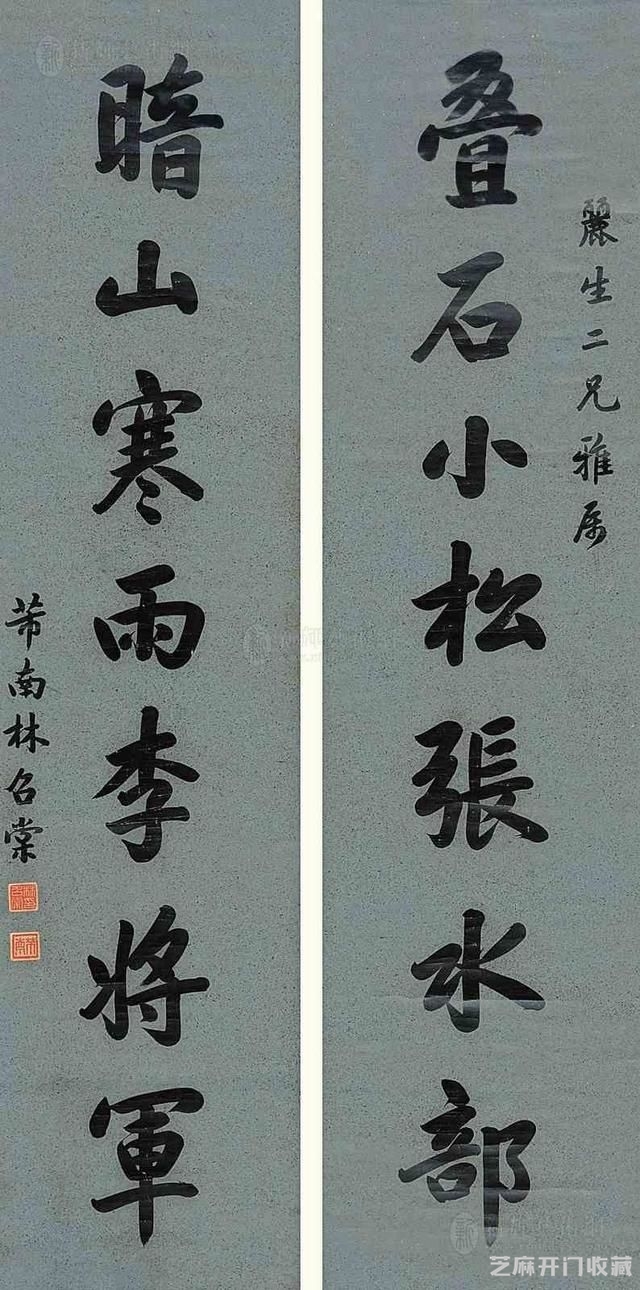 麗生二兄雅属
叠石小松張水部
暗山寒雨李將軍
芾南林召棠
芝麻开门收藏